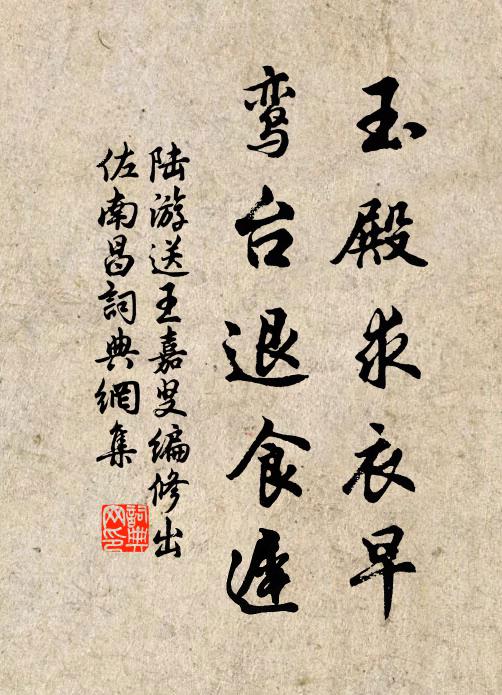 玉殿求衣早
鸾台退食遲
陆游送王嘉叟编修出
佐南昌詞典網集
詞典网印